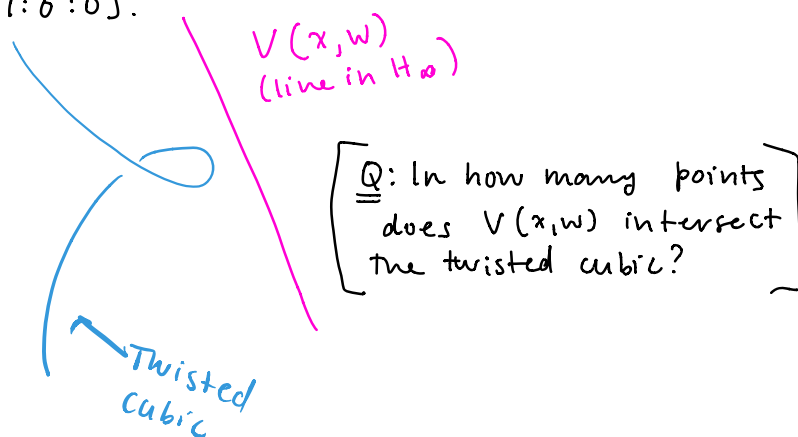 1:0:0].
V(x,w)
(line in H∞)
Q: In how many points
does V(x,w) intersect
the twisted cubic?
Twisted
cubic